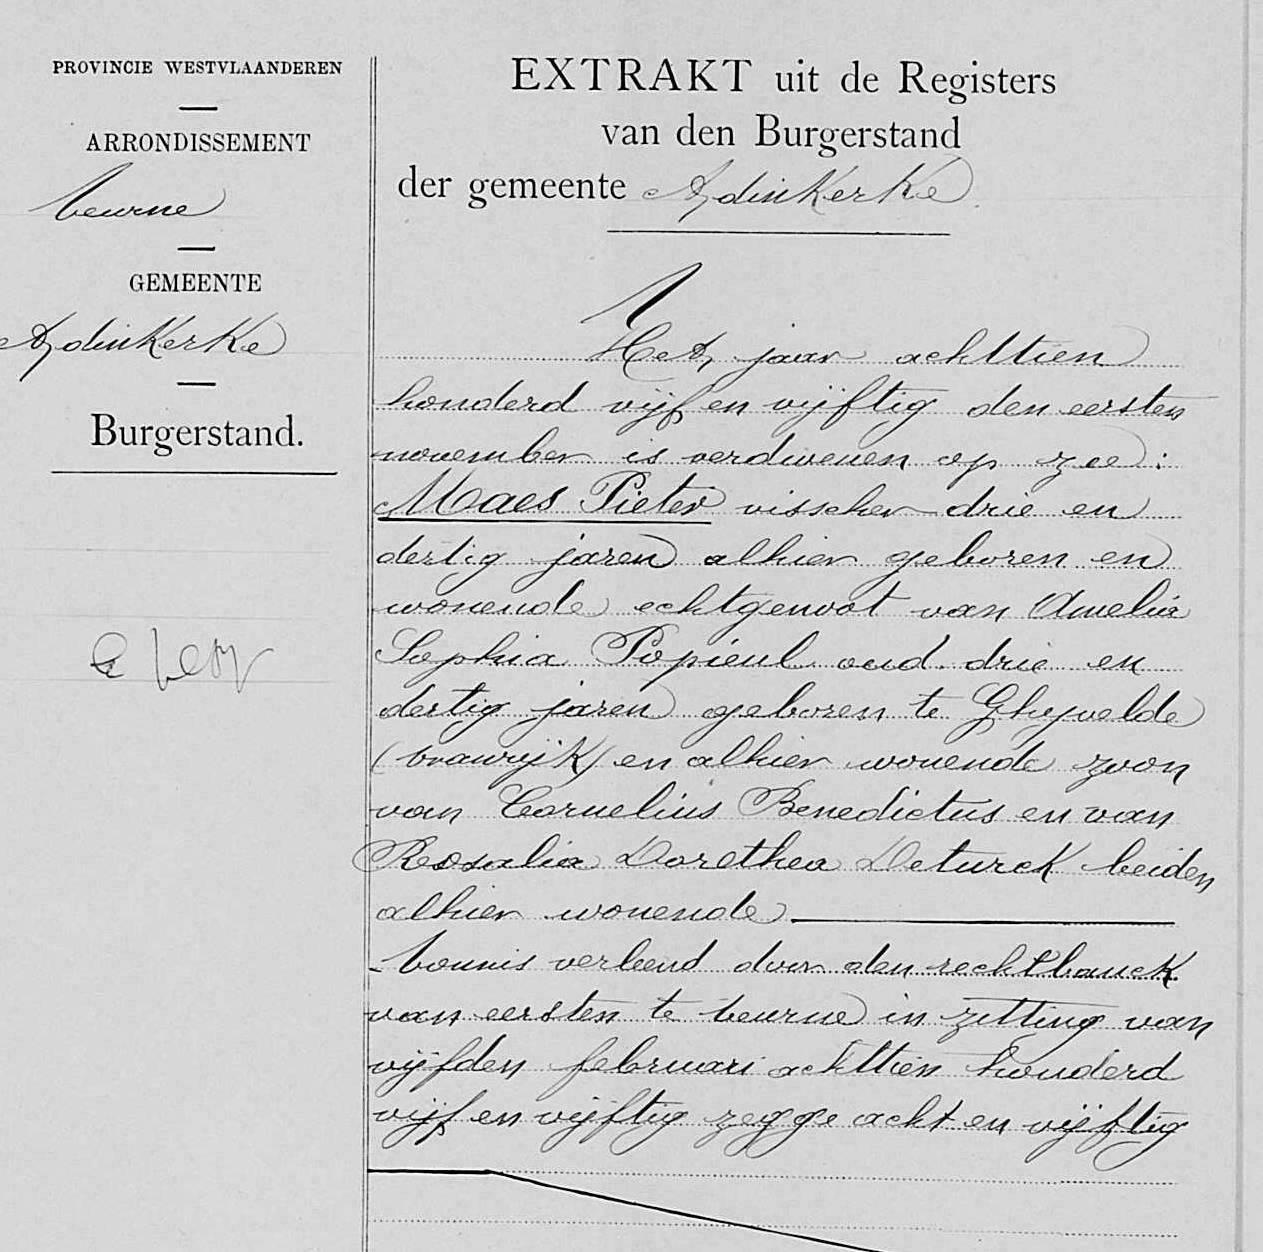 PROVINCIE WESTVLAANDEREN
ARRONDISSEMENT
Veurne
GEMEENTE
Adinkerke
Burgerstand.
EXTRAKT uit de Registers
van den Burgerstand
der gemeente Adinkerke
Het jaar achttien
honderd vijf en vijftig den eersten
november is verdwenen op zee :
Maes Pieter visscher drie en
dertig jaren alhier geboren en
wonende echtgenoot van Amelia
Sophia Popieul oud drie en
dertig jaren geboren te Ghyvelde
(vrankrijk) en alhier wonende zoon
van Cornelius Benedictus en van
Rosalia Dorethea Deturck beiden
alhier wonende
Vonnis verleend door den rechtbanck
van eersten te veurne in zitting van
vijfden februari achttien honderd
vijf en vijftig zegge acht en vijftig